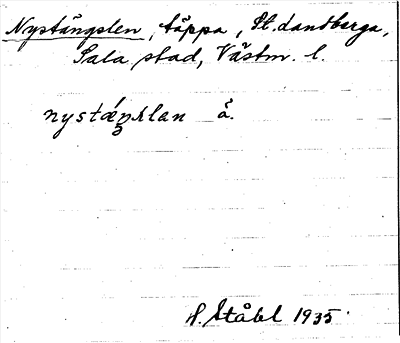 Nystängslen, täppa, St. Sandberga,
Sala stad, Västm. l.
nystæŋslan å.
H. Ståhl 1935.